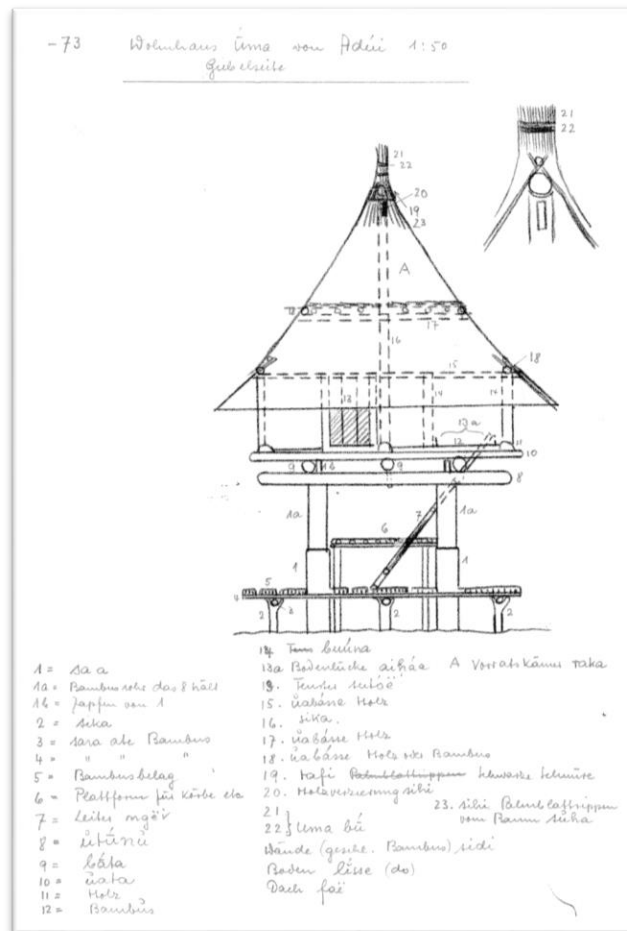 -73 Wohnhaus Uma von Adéri 1:50
Giebelseite
21
22
21
22
20
19
23
A
17
16
18
15
13
14
14
13a
12
11
10
9
1b
9
8
1a
7
1a
6
1
1
5
4
2
3
2
2
1 = sa a
1a = Bambusrohr das 8 hält
1b = Zapfen von 1
2 = sika
3 = sara abe Bambus
4 = " " "
5 = Bambusbelag
6 = Plattform für Körbe etc
7 = Leiter
8 =
9 = báta
10 = üata
11 = Holz
12 = Bambus
14 buúna
13a Bodenlücke A Vorratskämmer raka
13. Fenster
15. üabásse Holz
16. sika.
17. üabásse Holz
18. üabásse Holz oder Bambus
19. rafi Palmblattrippen schwarze Schnüre
20. Holzverzierung sihi
21
22 } Uma bú
23. sihi Palmblattrippen
vom Baum súha
Wände (gesch. Bambus) sidi
Boden lisse (do)
Dach faë